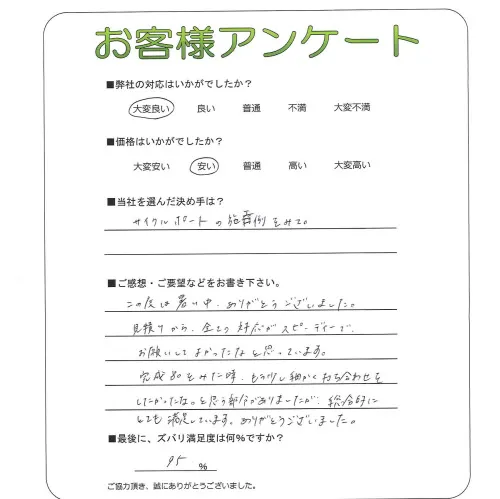 お客様アンケート
■弊社の対応はいかがでしたか?
大変良い 良い 普通 不満 大変不満
■価格はいかがでしたか?
大変安い 安い 普通 高い 大変高い
■当社を選んだ決め手は?
サイクルポートの施工例をみて。
■ご感想・ご要望などをお書き下さい。
この度は暑い中、ありがとうございました。
見積りから、全ての対応がスピーディーで、
お願いしてよかったなと思っています。
完成をみた時、もう少し細かく打ち合わせを
したかったな。と思う部分がありましたが、総合的に
とても満足しています。ありがとうございました。
■最後に、ズバリ満足度は何%ですか?
95 %
ご協力頂き、誠にありがとうございました。